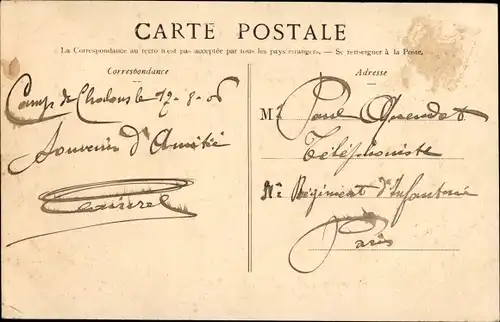 CARTE POSTALE
La Correspondance au recto n'est pas acceptée par tous les pays étrangers. — Se renseigner à la Poste.
Correspondance
Camp de Chalons le 12-8-06
Souvenir d'Amitié
Adresse
M. Paul
Téléphoniste
Régiment d'Infanterie
Paris